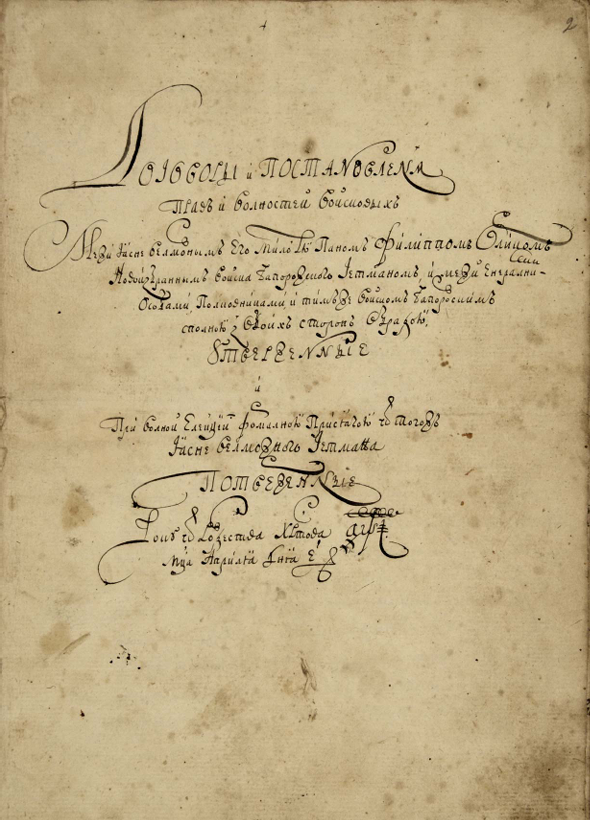 Договоры и ПОСТАНОВЛЕНѦ
Правъ и волностей войсковыхъ
Межи Ясне велможнымъ Его Млтю Паномъ Филиппомъ Орликомъ
Новоизбраннымъ войска Запорозского Гетманомъ, и межи Енерални-
Особами, Полковниками, и тимъ же войскомъ Запорозскимъ
сполною з обоихъ сторонъ обрадою,
УТВЕРЖЕННЫЕ
и
При волной Елекцїи формалною Присягою ѿ того жъ
Ясне велможного Гетмана
ПОТВЕРЖЕННЫЕ
Року ѿ Рожества Хртова ҂аѱі
мца Априля дня е҃
2